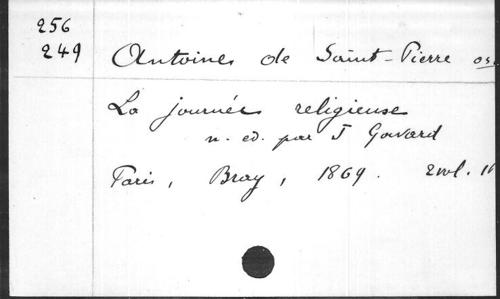 256
249
Antoine de Saint-Pierre
La journée religieuse
n. ed. par J Gouard
Paris, Bray, 1869. 2 vol.